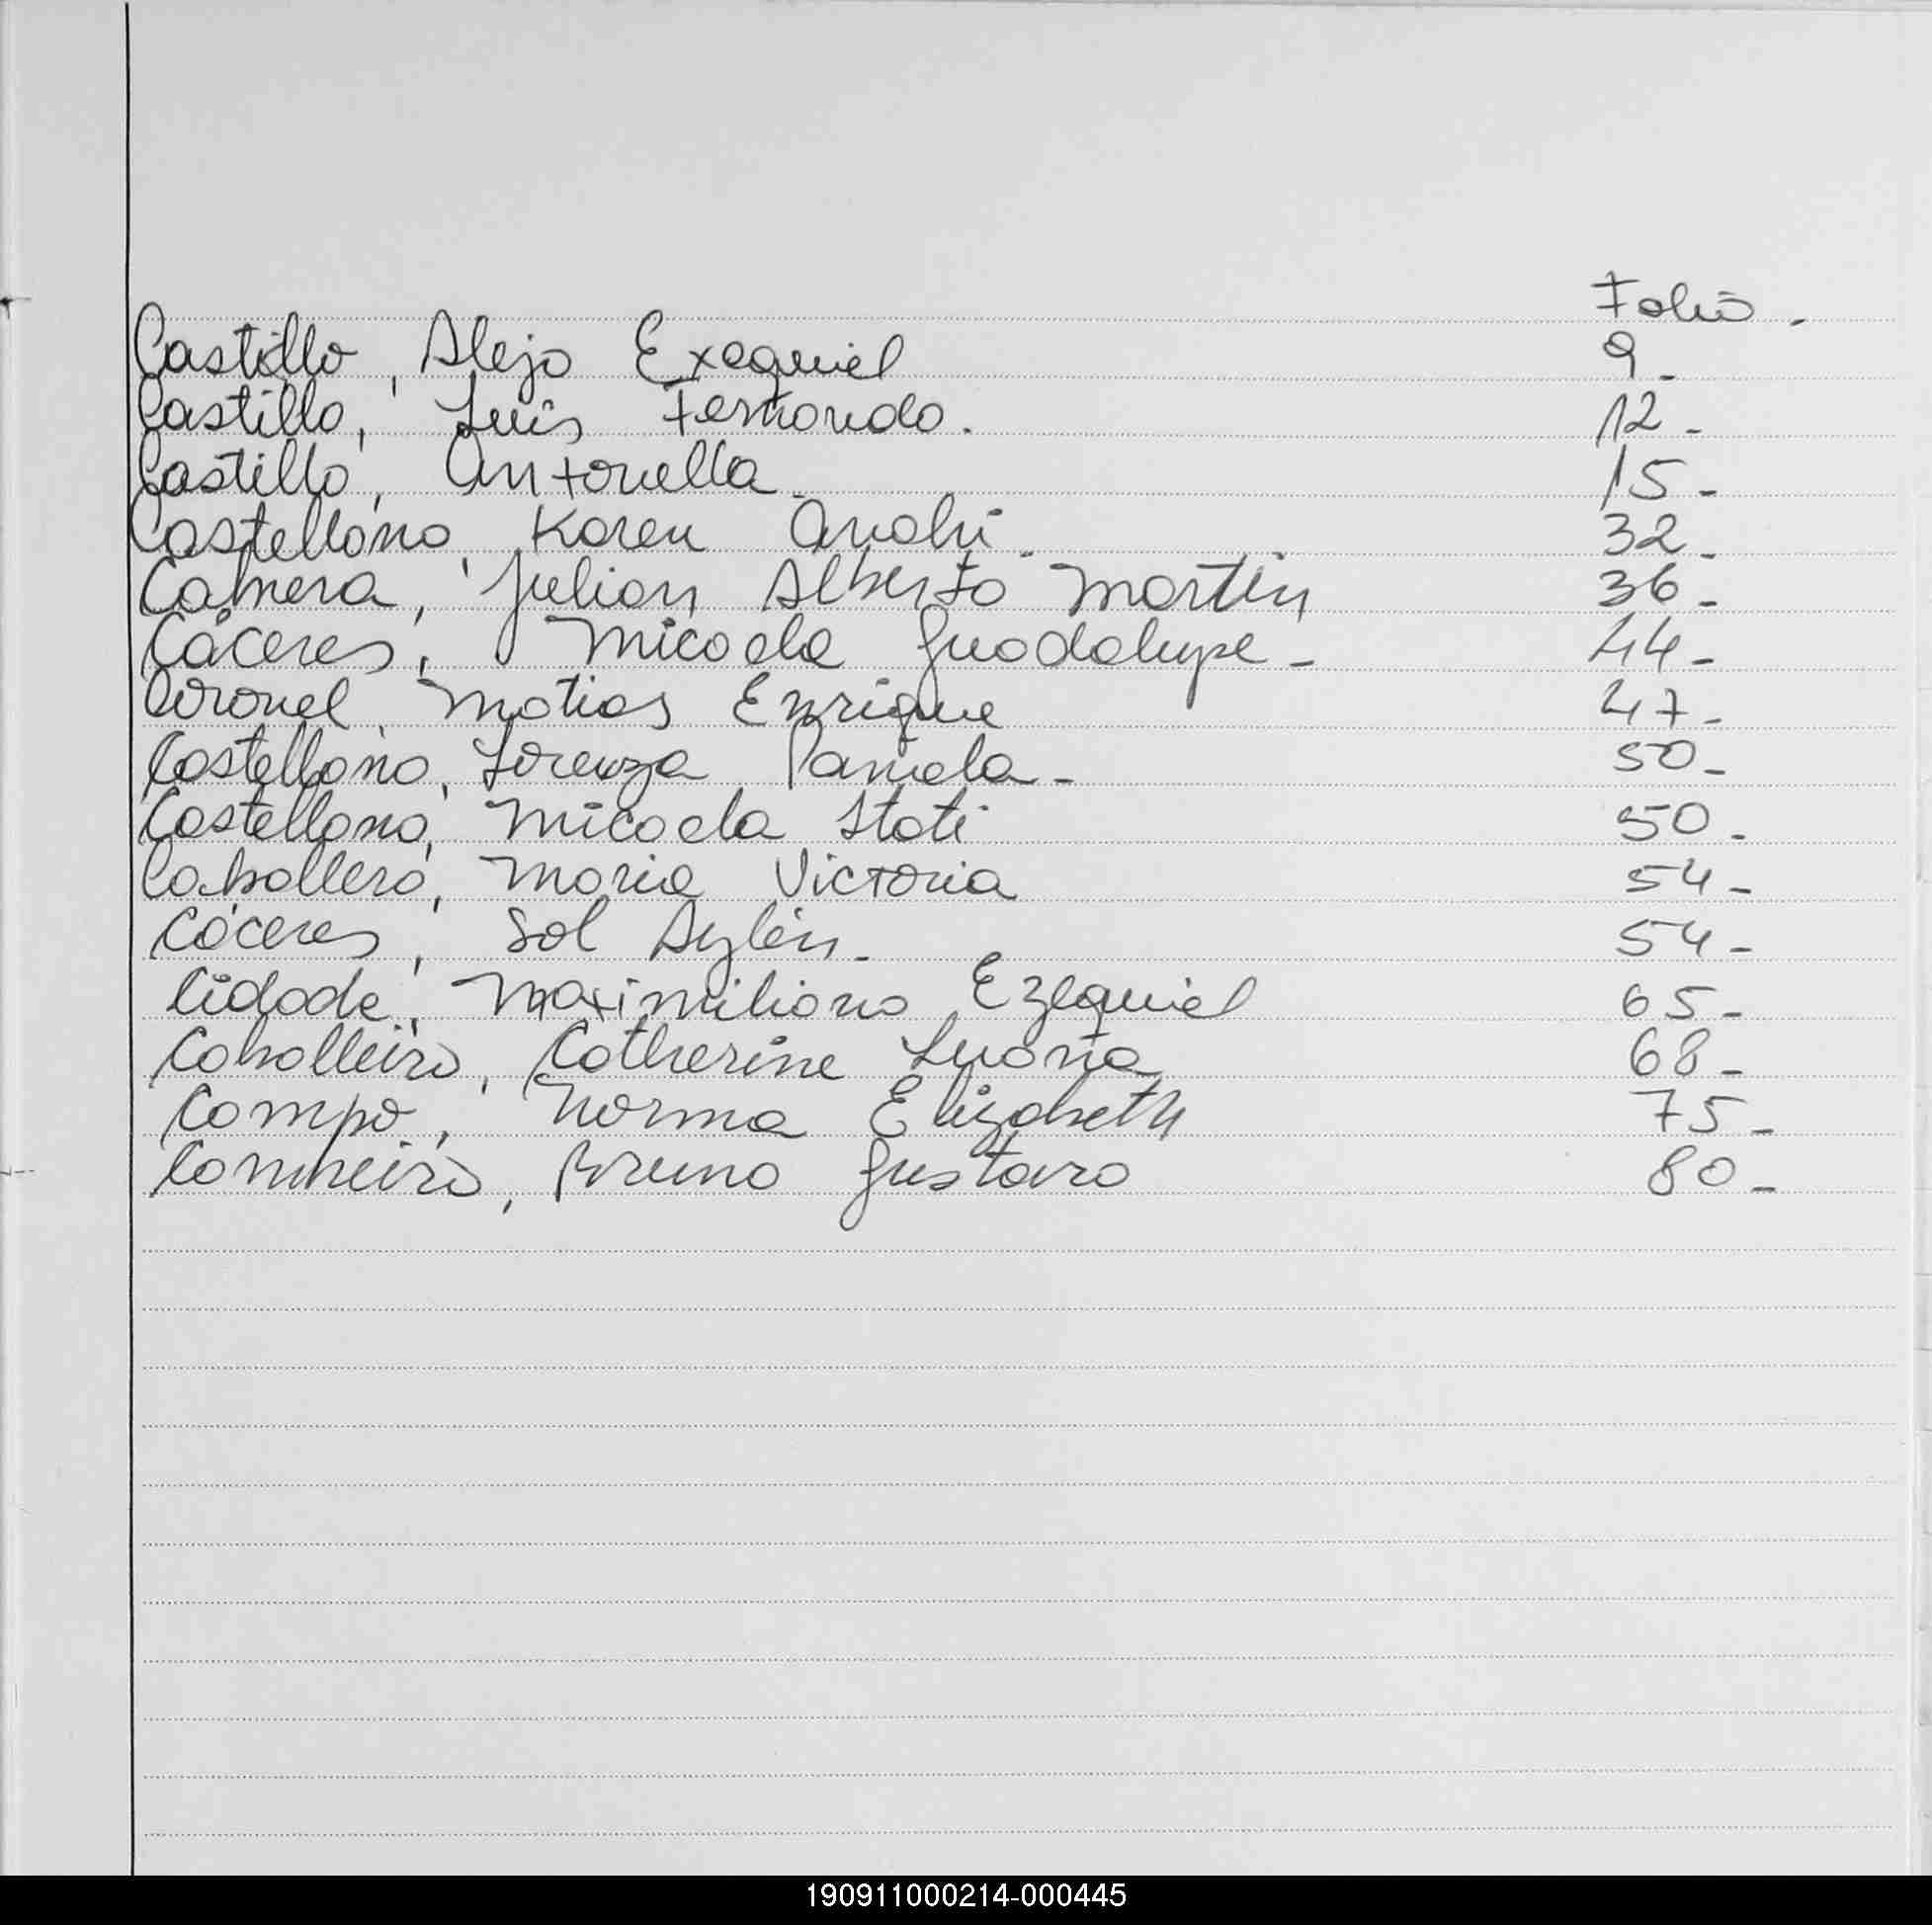 Folio.
Castillo, Alejo Exequiel 9-
Castillo, Luis Fernando. 12-
Castillo, Antonella. 15-
Castellano, Karen Anahi. 32-
Julian Alberto Martin 36-
Cáceres, Micaela Guadalupe- 44-
Coronel, Matias Enrique 47-
Castellano, Lorenza Pamela- 50-
Castellano, Micaela Stati 50-
Caballero, Maria Victoria 54-
Cáceres, Sol Aylén- 54-
Cidade, Maximiliano Ezequiel 65-
Caballeiro, Catherine 68-
Campo, Norma Elizabeth 75-
Bruno Gustavo 80-
190911000214-000445